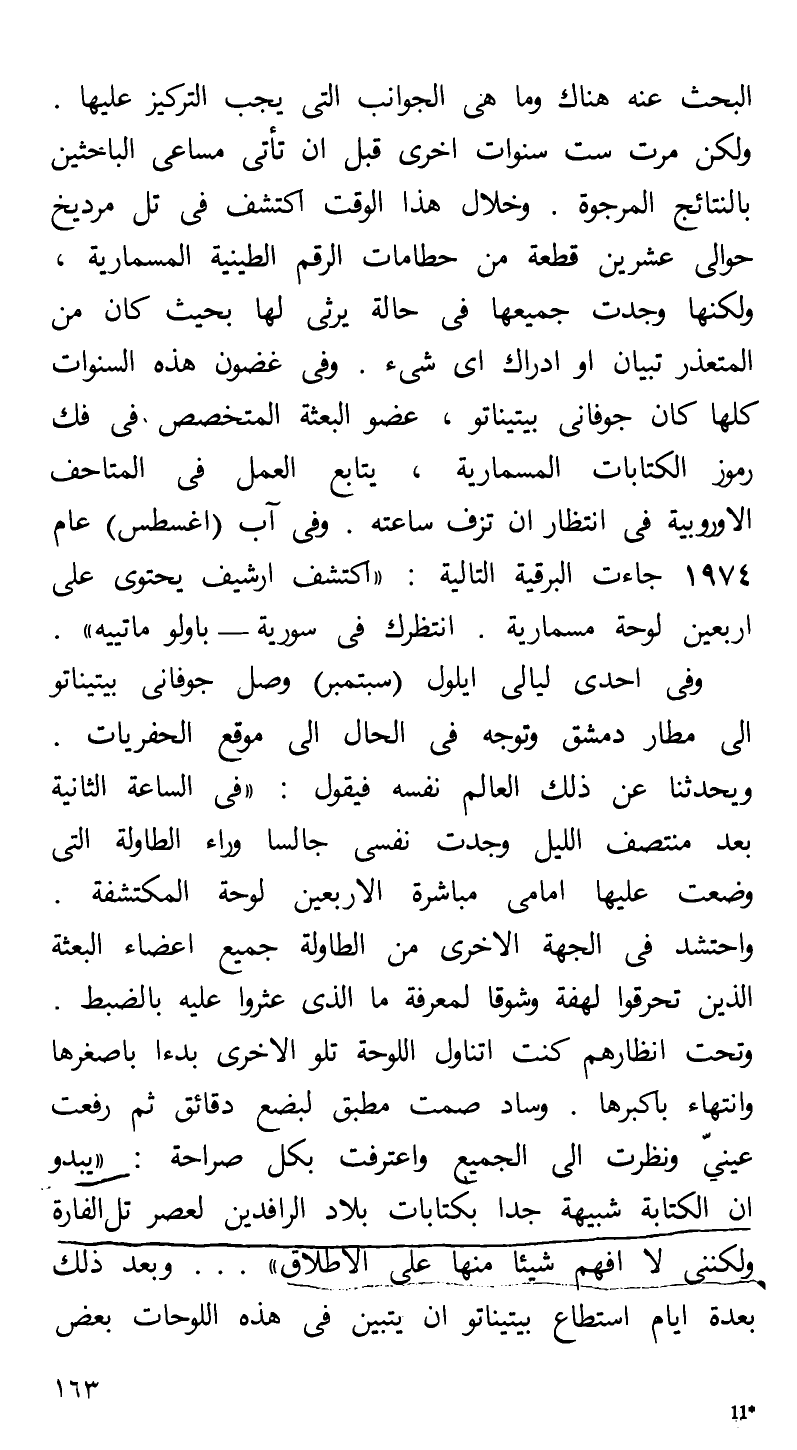 البحث عنه هناك وما هى الجوانب التى يجب التركيز عليها .
ولكن مرت ست سنوات اخرى قبل ان تأتى مساعى الباحثين
بالنتائج المرجوة . وخلال هذا الوقت اكتشف فى تل مرديخ
حوالى عشرين قطعة من حطامات الرقم الطينية المسمارية ،
ولكنها وجدت جميعها فى حالة يرثى لها بحيث كان من
المتعذر تبيان او ادراك اى شىء . وفى غضون هذه السنوات
كلها كان جوفانى بيتيناتو ، عضو البعثة المتخصص فى فك
رموز الكتابات المسمارية ، يتابع العمل فى المتاحف
الاوروبية فى انتظار ان تزف ساعته . وفى آب (اغسطس) عام
١٩٧٤ جاءت البرقية التالية : «اكتشف ارشيف يحتوى على
اربعين لوحة مسمارية . انتظرك فى سورية — باولو ماتييه» .
وفى احدى ليالى ايلول (سبتمبر) وصل جوفانى بيتيناتو
الى مطار دمشق وتوجه فى الحال الى موقع الحفريات .
ويحدثنا عن ذلك العالم نفسه فيقول : «فى الساعة الثانية
بعد منتصف الليل وجدت نفسى جالسا وراء الطاولة التى
وضعت عليها امامى مباشرة الاربعين لوحة المكتشفة .
واحتشد فى الجهة الاخرى من الطاولة جميع اعضاء البعثة
الذين تحرقوا لهفة وشوقا لمعرفة ما الذى عثروا عليه بالضبط .
وتحت انظارهم كنت اتناول اللوحة تلو الاخرى بدءا باصغرها
وانتهاء باكبرها . وساد صمت مطبق لبضع دقائق ثم رفعت
عينيّ ونظرت الى الجميع واعترفت بكل صراحة : «يبدو
ان الكتابة شبيهة جدا بكتابات بلاد الرافدين لعصر تل الفارة
ولكننى لا افهم شيئا منها على الاطلاق» . . . وبعد ذلك
بعدة ايام استطاع بيتيناتو ان يتبين فى هذه اللوحات بعض
١٦٣
11*